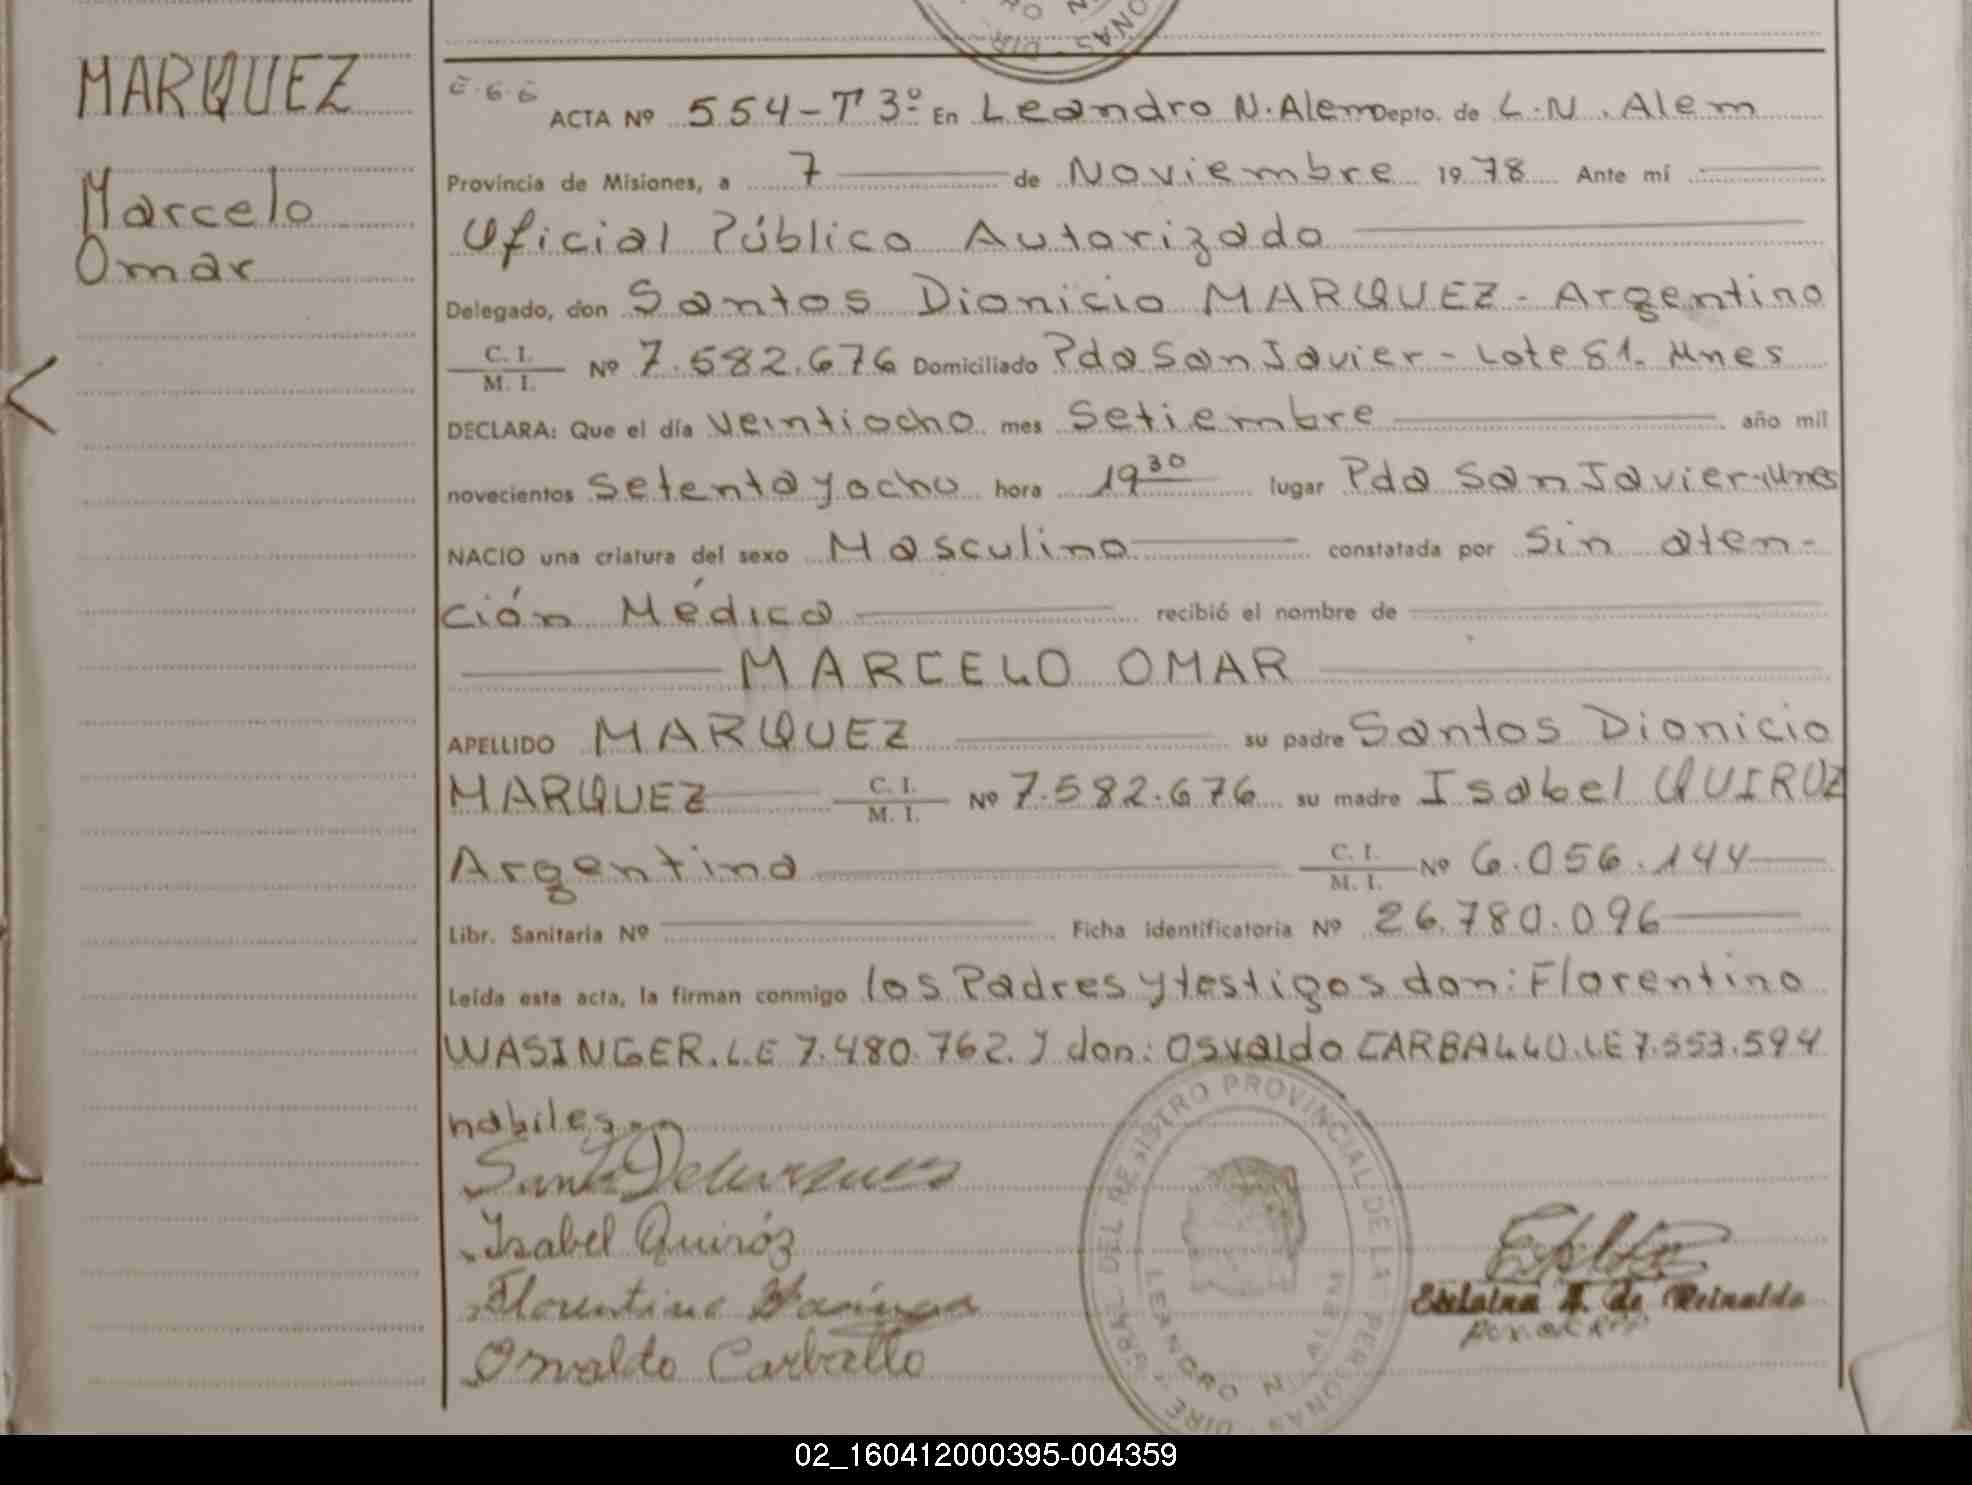 MARQUEZ
Marcelo
Omar
ACTA Nº 554-T 3º En Leandro N. Alem Depto. de L.N. Alem
Provincia de Misiones, a 7 de Noviembre 1978 Ante mí
Oficial Público Autorizado
Delegado, don Santos Dionicio MARQUEZ - Argentino
C. I. / M. I. Nº 7.582.676 Domiciliado Pda San Javier - Lote 81. Mnes
DECLARA: Que el día veintiocho mes Setiembre año mil
novecientos setenta y ocho hora 19 30 lugar Pda San Javier - Mnes
NACIO una criatura del sexo Masculino constatada por Sin aten-
ción Médica recibió el nombre de
MARCELO OMAR
APELLIDO MARQUEZ su padre Santos Dionicio
MARQUEZ C. I. / M. I. Nº 7.582.676 su madre Isabel QUIROZ
Argentina C. I. / M. I. Nº 6.056.144
Libr. Sanitaria Nº Ficha identificatoria Nº 26.780.096
Leída esta acta, la firman conmigo los Padres y testigos don: Florentino
WASINGER. L.E 7.480.762. y don: Osvaldo CARBALLO. LE 7.553.594
habiles.
Isabel Quiróz
Florentino
Osvaldo Carballo
DIRE GRAL. DEL REGISTRO PROVINCIAL DE LAS PERSONAS
LEANDRO N. ALEM
de Reinaldo
02_160412000395-004359